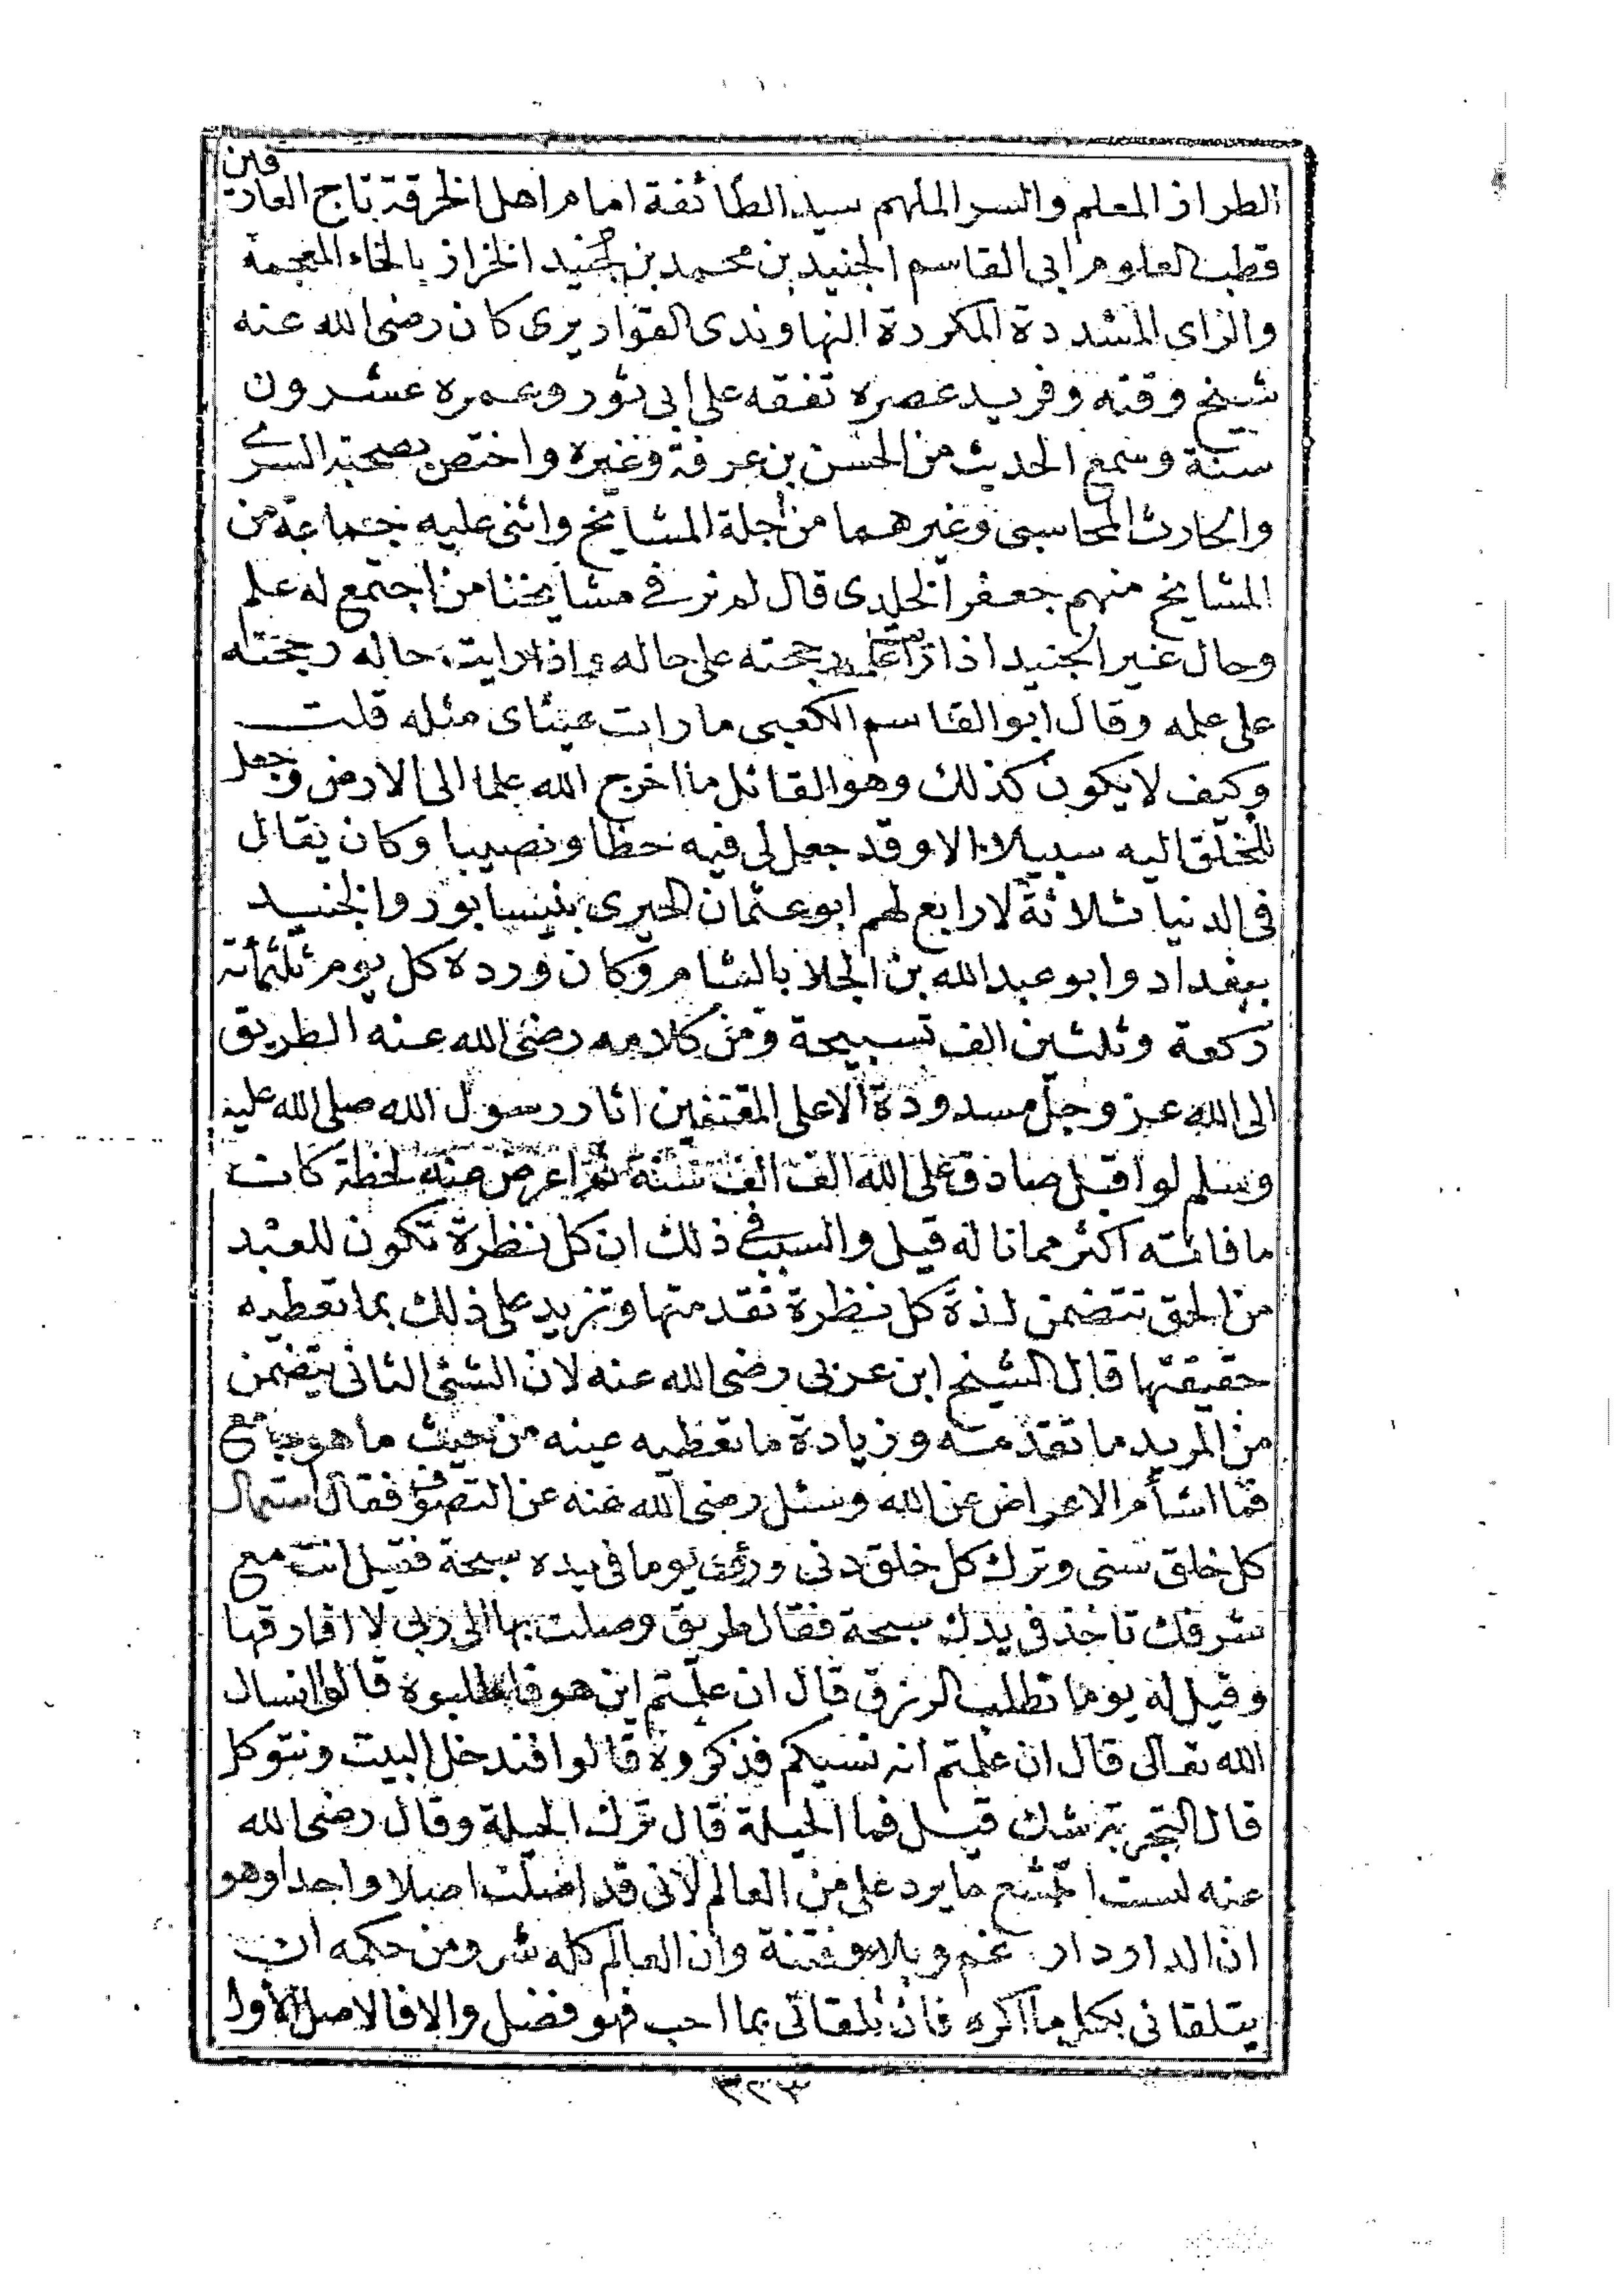 الطراز المعلم والسر الملهم سيد الطائفة امام اهل الخرقة تاج العارفين
قطب العلوم ابى القاسم الجنيد بن محمد بن جنيد الخزاز بالخاء المعجمة
والزاى المشددة المكررة النهاوندى القواريرى كان رضى الله عنه
شيخ وقته وفريد عصره تفقه على ابى ثور وعمره عشرون
سنة وسمع الحديث من الحسن بن عرفة وغيره واختص بصحبة السرى
والحارث المحاسبى وغيرهما من اجلة المشايخ واثنى عليه جماعة من
المشايخ منهم جعفر الخلدى قال لم نر فى مشايخنا من اجتمع له علم
وحال غير الجنيد اذا رايت علمه رجحته على حاله واذا رايت حاله رجحته
على علمه وقال ابو القاسم الكعبى ما رات عيناى مثله قلت
وكيف لا يكون كذلك وهو القائل ما اخرج الله علما الى الارض وجعل
للخلق اليه سبيلا الا وقد جعل لى فيه حظا ونصيبا وكان يقال
فى الدنيا ثلاثة لا رابع لهم ابو عثمان الحيرى بنيسابور والجنيد
ببغداد وابو عبد الله بن الجلا بالشام وكان ورده كل يوم ثلثمائة
ركعة وثلثين الف تسبيحة ومن كلامه رضى الله عنه الطريق
الى الله عز وجل مسدودة الا على المقتفين اثار رسول الله صلى الله عليه
وسلم لو اقبل صادق على الله الف الف سنة ثم اعرض عنه لحظة كان
ما فاته اكثر مما ناله قيل والسبب فى ذلك ان كل نظرة تكون للعبد
من الحق تتضمن لذة كل نظرة تقدمتها وتزيد على ذلك بما تعطيه
حقيقتها قال الشيخ ابن عربى رضى الله عنه لان الشئ الثانى يتضمن
من المزيد ما تقدمته وزيادة ما تعطيه عينه من حيث ما هو جامع
فما اشأم الاعراض عن الله وسئل رضى الله عنه عن التصوف فقال استعمال
كل خلق سنى وترك كل خلق دنى ورؤى يوما فى يده سبحة فقيل انت مع
شرفك تاخذ فى يدك سبحة فقال طريق وصلت بها الى ربى لا افارقها
وقيل له يوما نطلب الرزق قال ان علمتم اين هو فاطلبوه قالوا انسال
الله تعالى قال ان علمتم انه نسيكم فذكروه قالوا فندخل البيت ونتوكل
قال التجربة شك قيل فما الحيلة قال ترك الحيلة وقال رضى الله
عنه لست اتبشع ما يرد على من العالم لانى قد اصلت اصلا واحدا وهو
ان الدار دار غم وبلاء وفتنة وان العالم كله شر ومن حكمه ان
يتلقانى بكل ما اكره فان تلقانى بما احب فهو فضل والا فالاصل الاول
٣٢٣